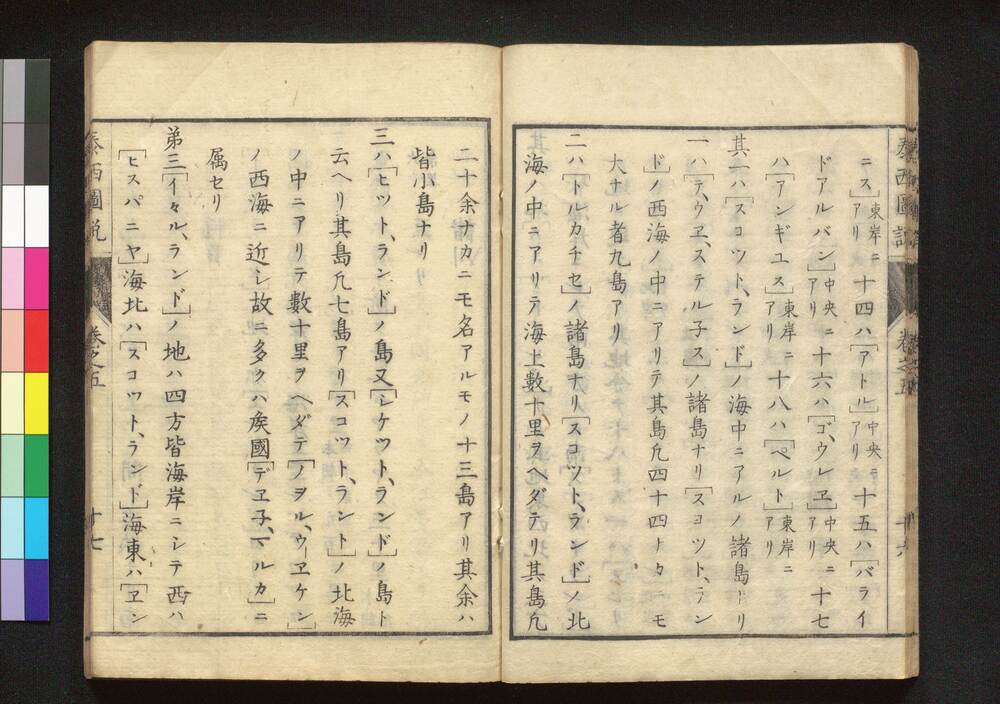 泰西圖說
卷之五
十六
ニス]東岸ニアリ 十四ハ[アトル]中央ニアリ 十五ハ[バライ
ドアルバン]中央ニアリ 十六ハ[ゴ、ウレヱ]中央ニアリ 十七
ハ[アンギユス]東岸ニアリ 十八ハ[ペルト]東岸ニアリ
其一ハ[スコツト、ランド]ノ海中ニアルノ諸島ドリ
一ハ[テ、ウヱ、ステル子ス]ノ諸島ナリ[スコツト、ラン
ド]ノ西海ノ中ニアリテ其島凢四十四トタニモ
大ナル者九島アリ
二ハ[トルカチセ]ノ諸島ナリ[スコツト、ランド]ノ北
海ノ中ニアリテ海上數十里ヲヘダテリ其島凢
二十余ナカニモ名アルモノ十三島アリ其余ハ
皆小島ナリ
三ハ[ヒツト、ランド]ノ島又[シケツト、ランド]ノ島ト
云ヘリ其島凢七島アリ[スコツト、ラント]ノ北海
ノ中ニアリテ數十里ヲヘダテ[ノヲル、ウヱケン]
ノ西海ニ近シ故ニ多クハ矦國[デヱ子、マルカ]ニ
属セリ
第三[イヽル、ランド]ノ地ハ四方皆海岸ニシテ西ハ
[ヒスパニヤ]海北ハ[スコツト、ランド]海東ハ[ヱン
泰西圖說
卷之五
十七